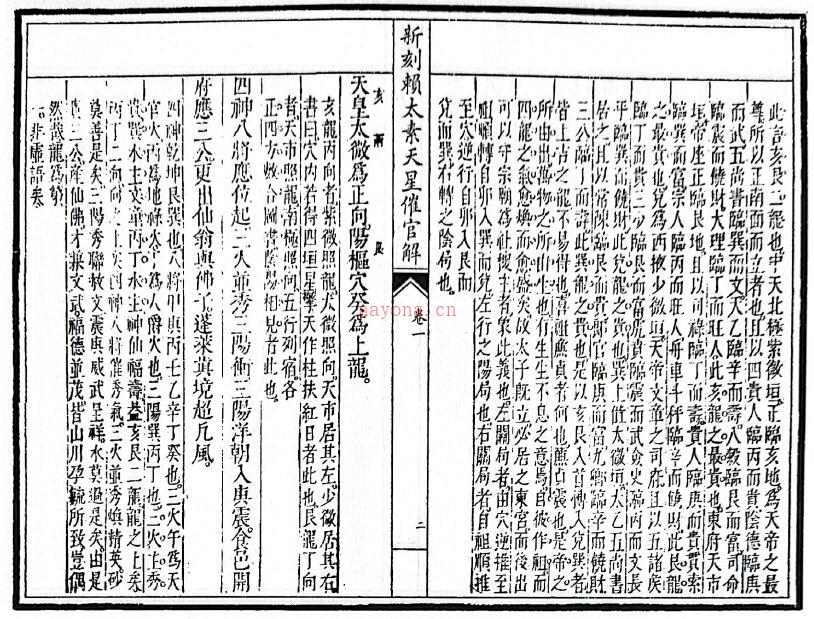 此言亥艮二龍也中天北極紫微垣正臨亥地爲天帝之最
尊所以正南面而立者也且以四貴人臨丙而貴陰德臨庚
而武五尚書臨巽而文天乙臨辛而壽八穀臨艮而富司命
臨震而饒財大理臨丁而旺人此亥龍之最貴也東府天市
垣帝座正臨艮地且以司祿臨丁而壽貴人臨庚而貴貫索
臨巽而富宗人臨丙而旺人帝車斗秤臨辛而饒財此艮龍
之最貴也兌爲西掖少微垣天帝文章之司府且以五諸侯
臨丁而貴三公臨艮而富虎賁臨震而武僉史臨丙而文長
平臨巽而饒財此兌龍之貴也巽上值太微垣天乙五尚書
居之且以常陳臨艮而貴郎官臨庚而富九卿臨辛而饒財
三公臨丁而壽此巽龍之貴也是以亥艮入首轉入兌巽者
皆上吉之龍不易得也喜祖廉貞者何也廉貞震也是帝之
所由出萬物之所由生也有生生不息之意焉自彼作祖而
四龍之氣愈煥而愈盛矣故太子旣立必居之東宮而後出
可以守宗廟爲社稷主者象此義也左關局者由穴逆推至
祖順轉自卯入巽而兌左行之陽局也右關局者自祖順推
至穴逆行自卯入艮而
兌而巽不轉之陰局也
新刻賴太素天星催官解
卷一
二
亥龍 艮
天皇太微爲正向陽樞穴癸爲上龍
亥龍丙向者紫微照龍太微照向天市居其左少微居其右
書曰穴內若得四垣星擎天作柱扶紅日者此也艮龍丁向
者天市照龍南極照向五行列宿各
正四方數合圖書陰陽相見者此也
四神八將應位起三火並秀三陽衝三陽洋朝入庚震食邑開
府應三公更出仙翁與佛子蓬萊真境超凡風
四神乾坤艮巽也八將甲庚丙壬乙辛丁癸也三火午爲天
官火丙爲地祿火丁爲人爵火也三陽巽丙丁也三火主秀
貴巽水主文章丙丁水主神仙福壽蓋亥艮二龍龍之上矣
丙丁二向向之上矣四神八將催秀氣三火並秀煥精英砂
莫善是矣三陽秀聯教文震庚威武呈祥水莫過是矣由是
貴三公產仙佛才兼文武福德並茂皆山川孕毓所致豈偶
然哉龍爲第
一非虛語矣
nayona.cn